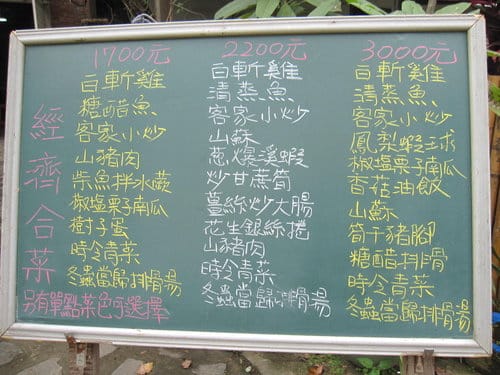 經濟合菜
1700元
白斬雞
糖醋魚
客家小炒
山豬肉
柴魚拌水蕨
椒塩栗子南瓜
樹子蛋
時令青菜
冬蟲當歸排骨湯
2200元
白斬雞
清蒸魚
客家小炒
山蘇
蔥爆溪蝦
炒甘蔗筍
薑絲炒大腸
花生銀絲捲
山豬肉
時令青菜
冬蟲當歸排骨湯
3000元
白斬雞
清蒸魚
客家小炒
鳳梨蝦球
椒塩栗子南瓜
香菇油飯
山蘇
筍干豬腳
糖醋排骨
時令青菜
冬蟲當歸排骨湯
另有單點菜色可選擇